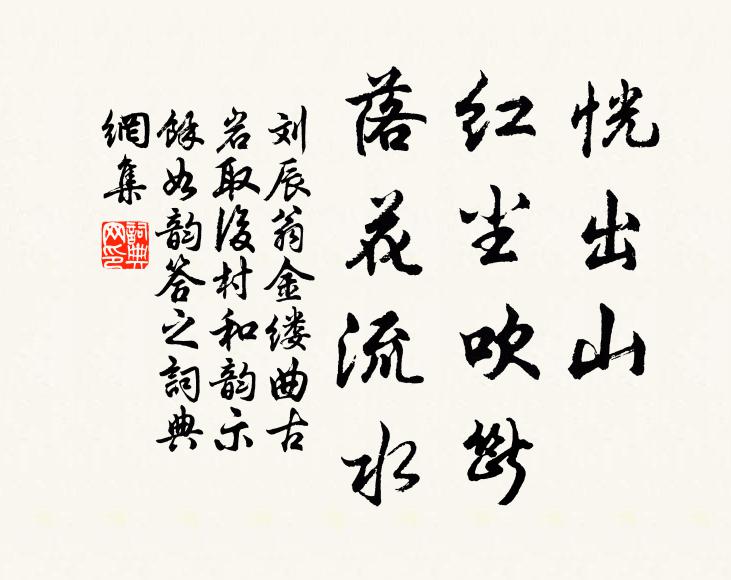 恍出山
红尘吹断
落花流水
刘辰翁金缕曲古
岩取後村和韵示
馀如韵答之詞典
網集
詞典
网印